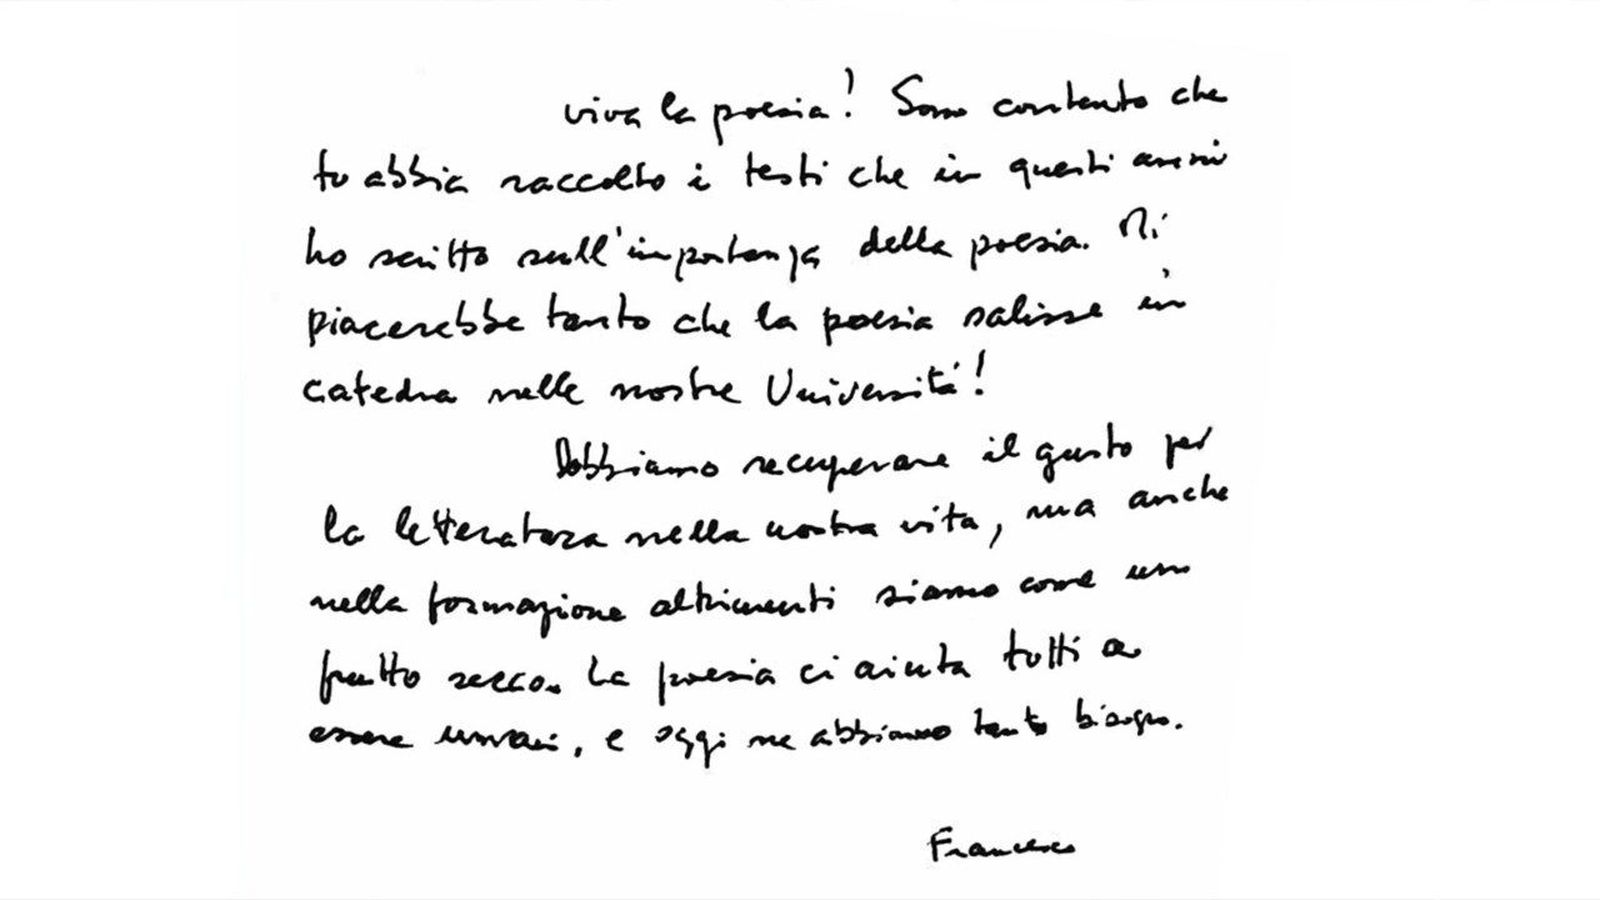 viva la poesia! Sono contento che
tu abbia raccolto i testi che in questi anni
ho scritto sull'importanza della poesia. Mi
piacerebbe tanto che la poesia salisse in
catedra nelle nostre Università!
Dobbiamo recuperare il gusto per
la letteratura nella nostra vita, ma anche
nella formazione altrimenti siamo come un
frutto secco. La poesia ci aiuta tutti a
essere umani, e oggi ne abbiamo tanto bisogno.
Francesco